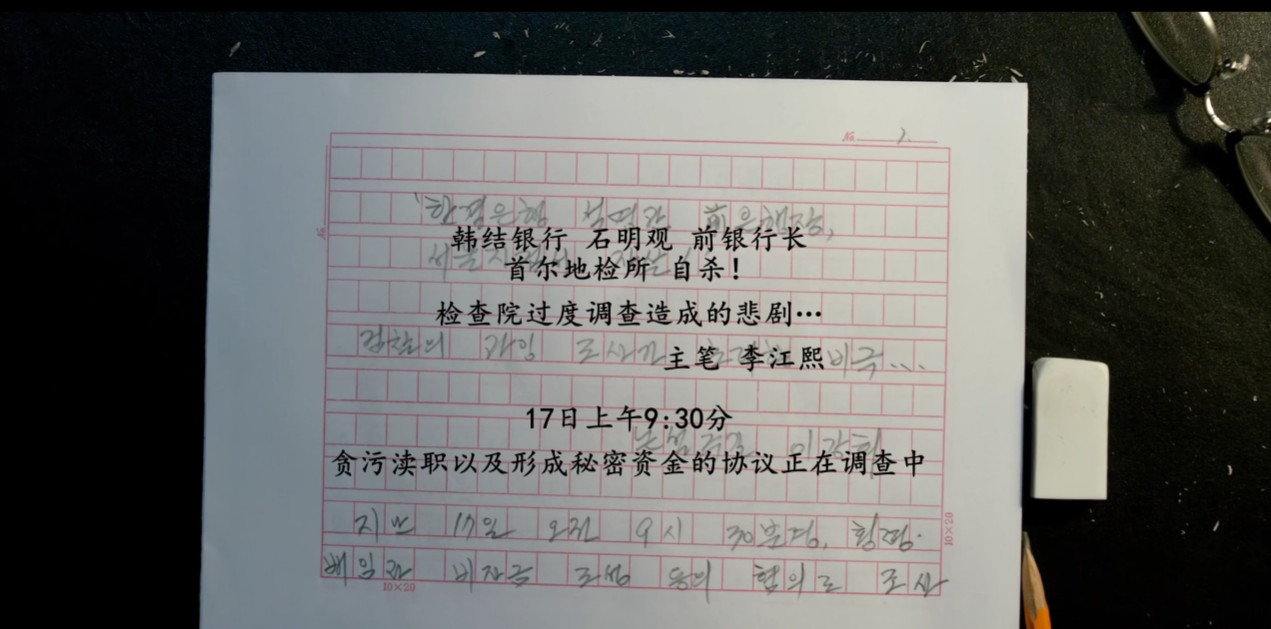 № 1.
"한결은행 석명관 前은행장,
韩结银行 石明观 前银行长
首尔地检所 自杀！
检查院过度调查造成的悲剧…
검찰의 과잉 조사가 비극...
主笔 李江熙
17日上午9:30分
논설주간 이강희
贪污渎职以及形成秘密资金的协议正在调查中
지난 17일 오전 9시 30분경, 횡령·
배임과 비자금 조성 등의 협의로 조사
10×20
10×20